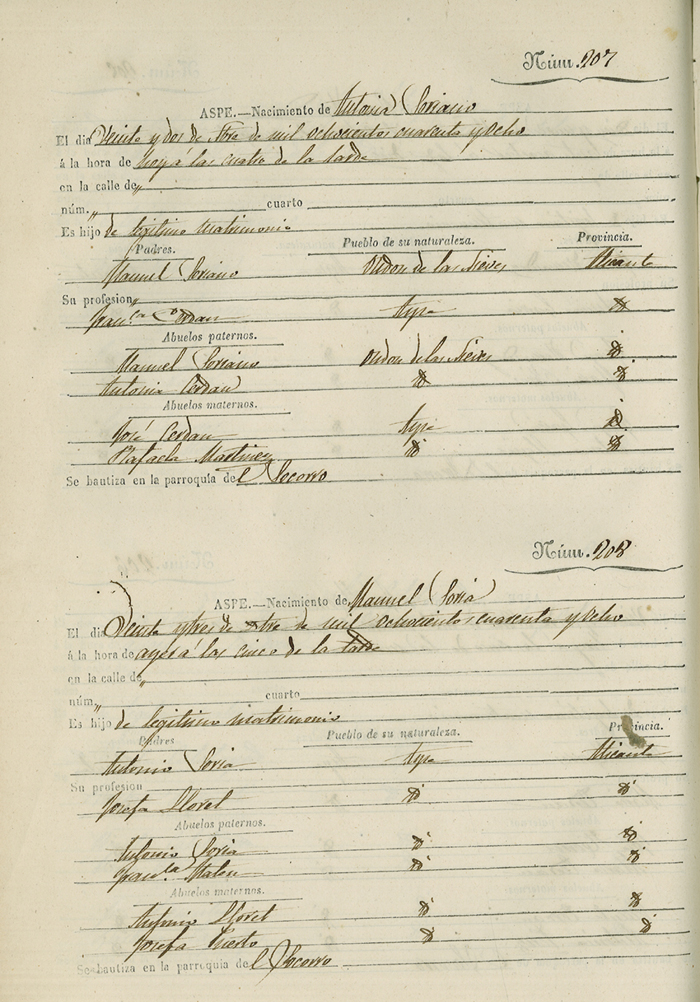 Núm. 207
ASPE.—Nacimiento de Antonia Soriano
El dia Veinte y dos de Stre de mil ochocientos cuarenta y ocho
á la hora de hoy á las cuatro de la tarde
en la calle de „
núm. „ cuarto
Es hijo de legitimo matrimonio
Padres. Pueblo de su naturaleza. Provincia.
Manuel Soriano de las Nieves Alicante
Su profesion „
Fran.ca Cerdan Aspe id
Abuelos paternos.
Manuel Soriano de las Nieves id
Antonia Cerdan id id
Abuelos maternos.
José Cerdan Aspe id
Rafaela Martinez id id
Se bautiza en la parroquia del Socorro
Núm. 208
ASPE.—Nacimiento de Manuel Soria
El dia Veinte y tres de Stre de mil ochocientos cuarenta y ocho
á la hora de ayer á las cinco de la tarde
en la calle de „
núm. „ cuarto
Es hijo de legitimo matrimonio
Padres Pueblo de su naturaleza. Provincia.
Antonio Soria Aspe Alicante
Su profesion
Josefa Lloret id id
Abuelos paternos.
Antonio Soria id id
Fran.ca id id
Abuelos maternos.
Antonio Lloret id id
Josefa Puerto id id
Se bautiza en la parroquia del Socorro